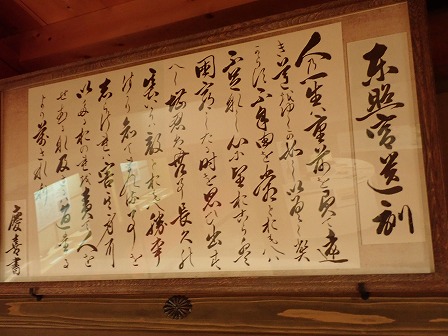 東照宮遺訓
人の一生は重荷を負て遠
き道をゆくか如しいそくへ
からす不自由を常とおもへは
不足なし心に望おこらは
困窮したる時を思ひ出す
へし堪忍は無事長久の
基いかりは敵とおもへ勝事
はかり知てまくる事を
しらされは害其身に
いたるおのれを責て人を
せむるな及はさるは過たる
より まされり
慶喜書